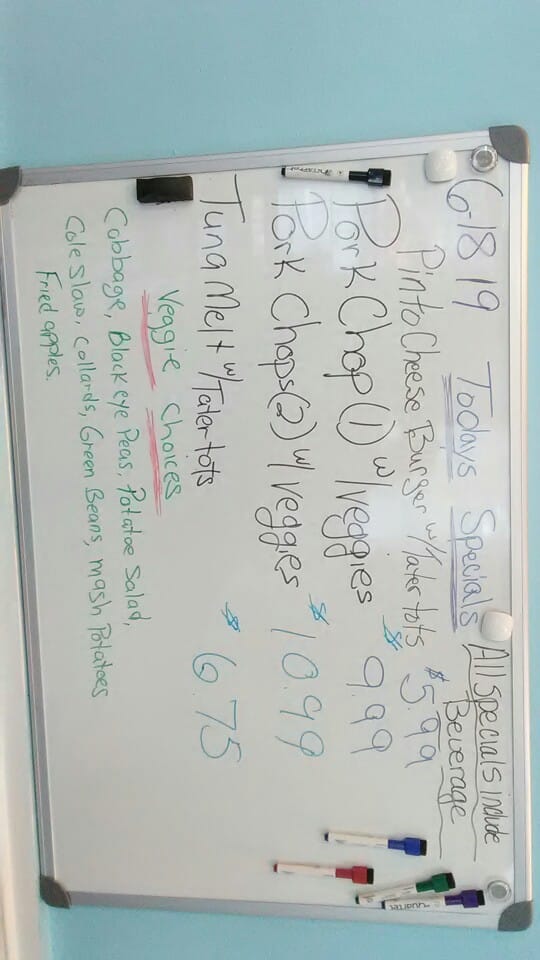 6-18 19 Todays Specials
All specials include
Beverage
Pinto Cheese Burger w/Tater tots $5.99
Pork Chop (1) w/veggies $9.99
Pork Chops (2) w/veggies $10.99
Tuna Melt w/Tater tots $6.75
Veggie Choices
Cabbage, Black eye Peas, Potatoe Salad,
Cole slaw, Collards, Green Beans, mash Potatoes
Fried apples.
Quartet